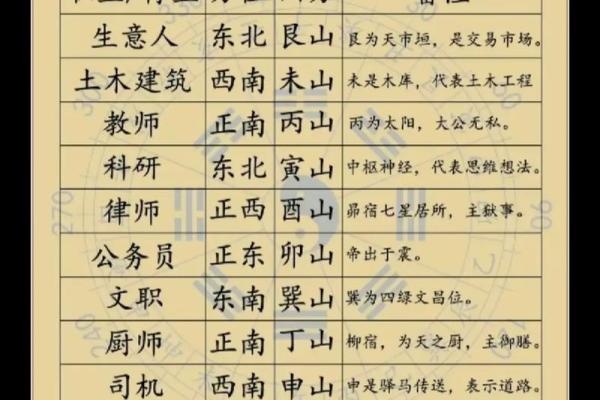 生意人 东北 艮山 艮为天市垣，是交易市场。
土木建筑 西南 未山 未是木库，代表土木工程
教师 正南 丙山 丙为太阳，大公无私。
科研 东北 寅山 中枢神经，代表思维想法。
律师 正西 酉山 昴宿七星居所，主狱事。
公务员 正东 卯山 帝出于震。
文职 东南 巽山 巽为四绿文昌位。
厨师 正南 丁山 柳宿，为天之厨，主御膳。
司机 西南 申山 申是驿马传送，表示道路。
270
90
240